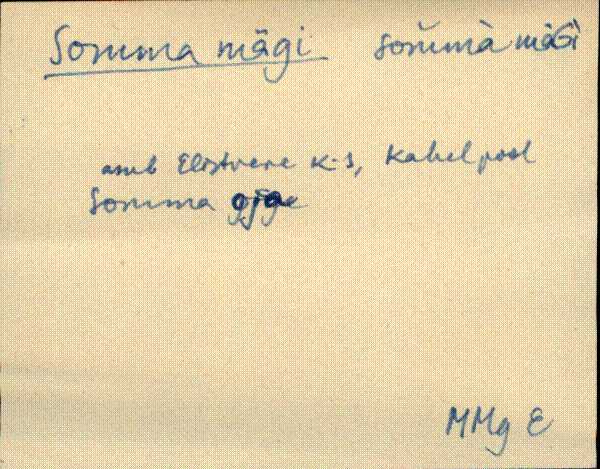 Somma mägi som̆mà mäGì
asub Elistvere k-s, kahel pool
Somma oja
MMg E